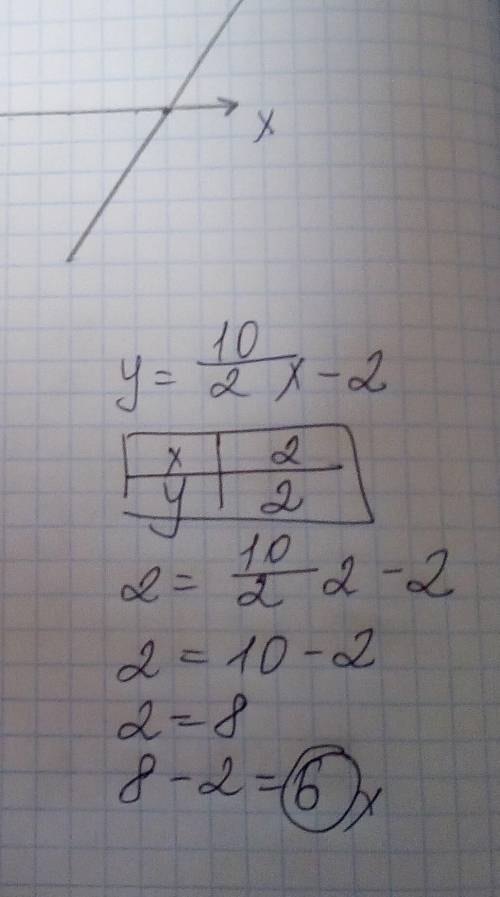 x
y = 10/2 x - 2
x 2
y 2
2 = 10/2 2 - 2
2 = 10 - 2
2 = 8
8 - 2 = 6 x